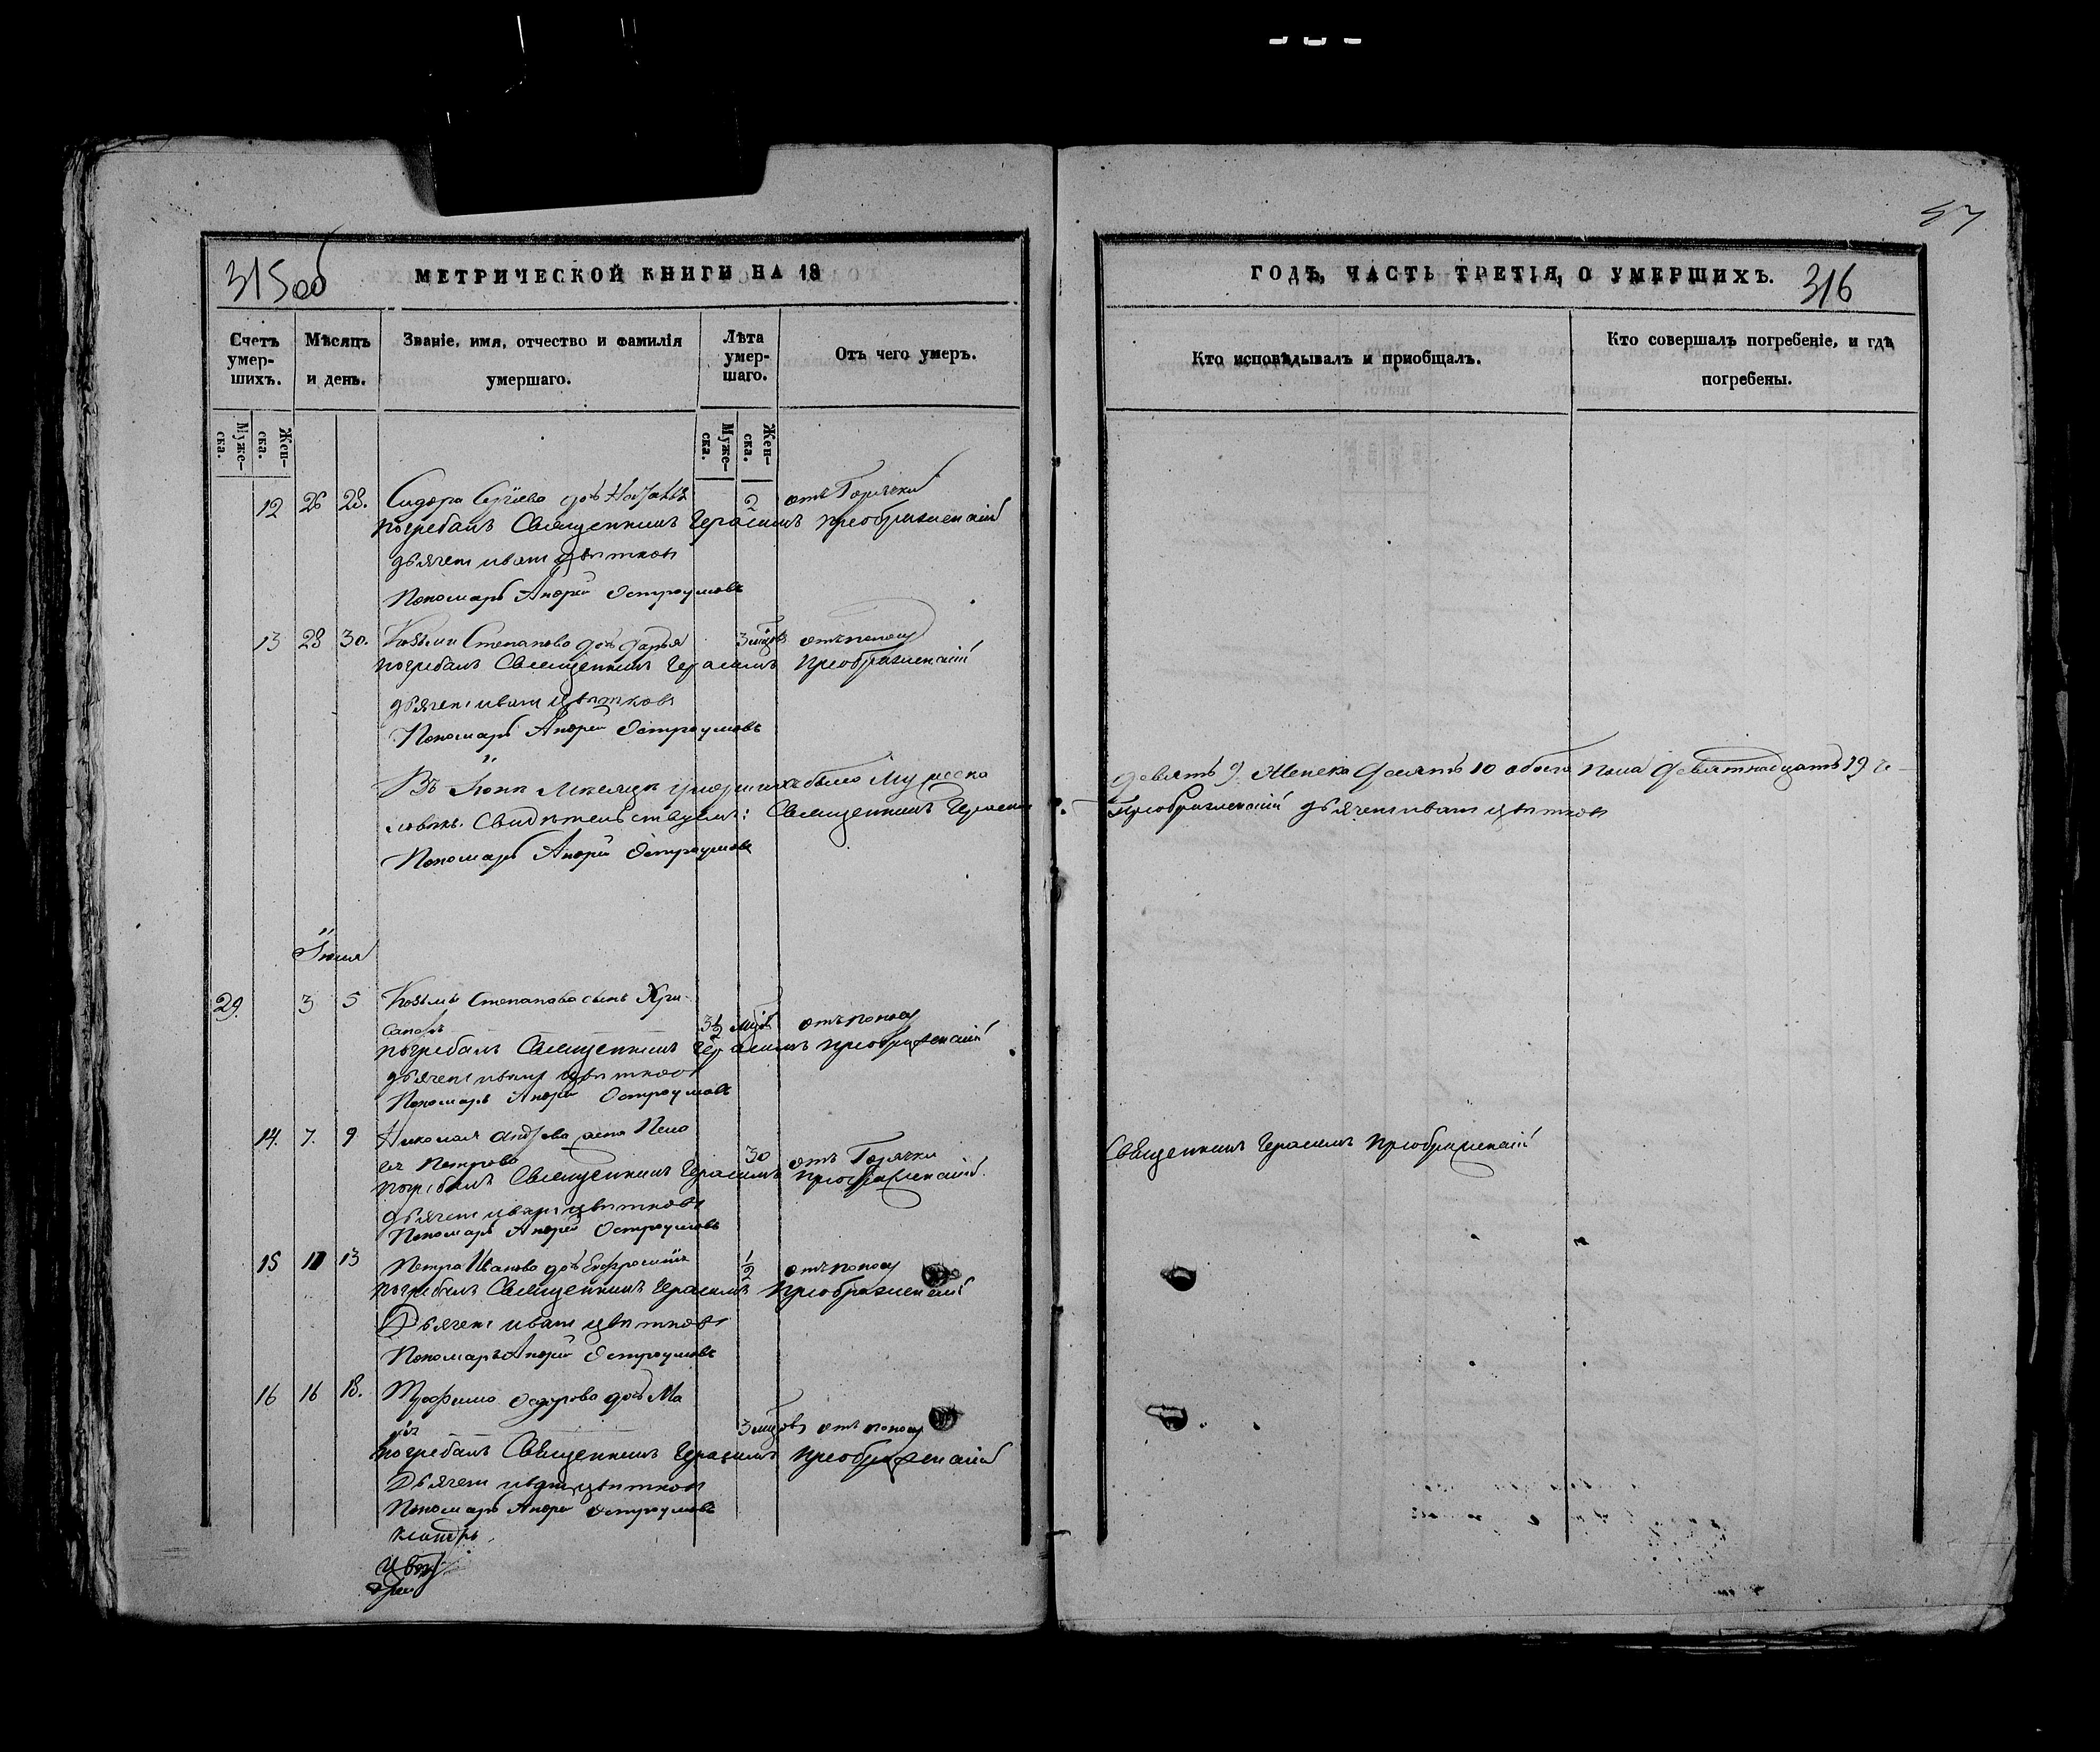 57
315об
МЕТРИЧЕСКОЙ КНИГИ НА 18
ГОДЪ, ЧАСТЬ ТРЕТІЯ, О УМЕРШИХЪ.
316
Счетъ умер-шихъ.
Мѣсяцъ и день.
Званіе, имя, отчество и фамилія умершаго.
Лѣта умер-шаго.
Отъ чего умеръ.
Кто исповѣдывалъ и приобщалъ.
Кто совершалъ погребеніе, и гдѣ погребены.
Муже-ска.
Жен-ска.
Муже-ска.
Жен-ска.
12 26 28. Сидора дочь 2 отъ Горячки
погребалъ Священникъ Герасимъ Преображенскій
дьячекъ иванъ цвѣтковъ
Пономарь Андрей Остроумовъ
13 28 30. Козьмы Степанова дочь дарья 3 отъ поносу
погребалъ Священникъ Герасимъ Преображенскій
дьячекъ иванъ цвѣтковъ
Пономарь Андрей Остроумовъ
Въ Іюнѣ Мѣсяцѣ умершихъ было Мужеска девять 9. Женска десять 10 обоего пола девятнадцать 19 че-
ловѣкъ. Свидѣтельствуемъ: Священникъ Герасимъ Преображенскій дьячекъ иванъ цвѣтковъ
Пономарь Андрей Остроумовъ
Іюля
29. 3 5 Козьмы Степанова сынъ Хри-
санфъ 3½ отъ поносу
погребалъ Священникъ Герасимъ Преображенскій
дьячекъ иванъ цвѣтковъ
Пономарь Андрей Остроумовъ
14. 7. 9 Николая жена Пела
гея Петрова 30 отъ Горячки Священникъ Герасимъ Преображенскій
погребалъ Священникъ Герасимъ Преображенскій
дьячекъ иванъ цвѣтковъ
Пономарь Андрей Остроумовъ
15 11 13 Петра Иванова дочь Евфросинія ½ отъ поносу
погребалъ Священникъ Герасимъ Преображенскій
Дьячекъ иванъ цвѣтковъ
Пономарь Андрей Остроумовъ
16 16 18. Трофима дочь Ма
рія 3 отъ поносу
погребалъ Священникъ Герасимъ Преображенскій
Дьячекъ иванъ цвѣтковъ
Пономарь Андрей Остроумовъ